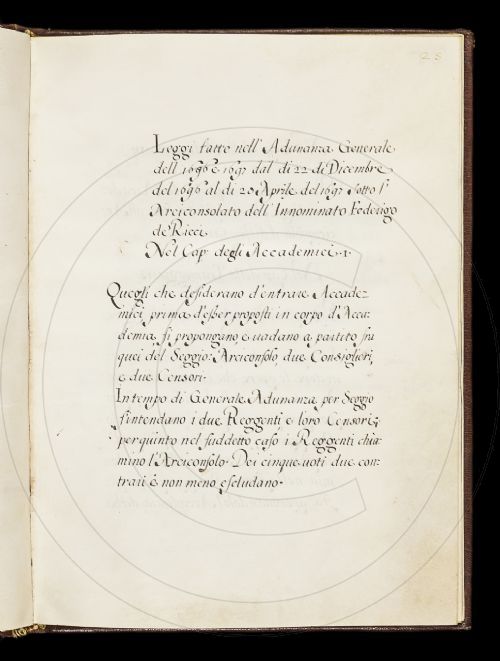 25
Leggi fatte nell'Adunanza Generale
dell 1696 e 1697 dal di 22 di Dicembre
del 1696 al di 20 Aprile del 1697 sotto l'
Arciconsolato dell'Innominato Federigo
de Ricci
Nel Cap. degli Accademici .1.
Quegli che desiderano d'entrare Accade-
mici prima d'esser proposti in corpo d'Acca-
demia, si propongano, e vadano a partito fra
quei del Seggio: Arciconsolo, due Consiglieri,
e due Censori.
In tempo di Generale Adunanza per Seggio
s'intendano i due Reggenti e loro Censori;
per quinto nel suddetto caso i Reggenti chia-
mino l'Arciconsolo. Dei cinque voti due con-
trarii e non meno escludano.